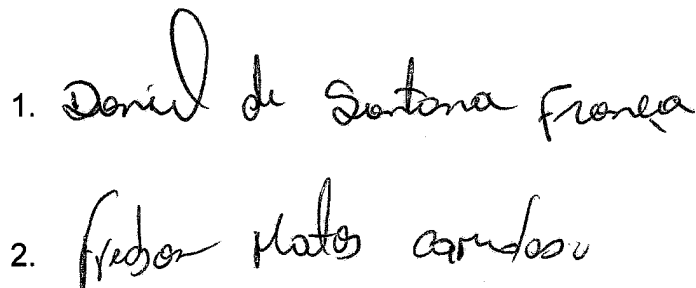 1. Daniel de Santana França
2. Fredson Matos Cardoso